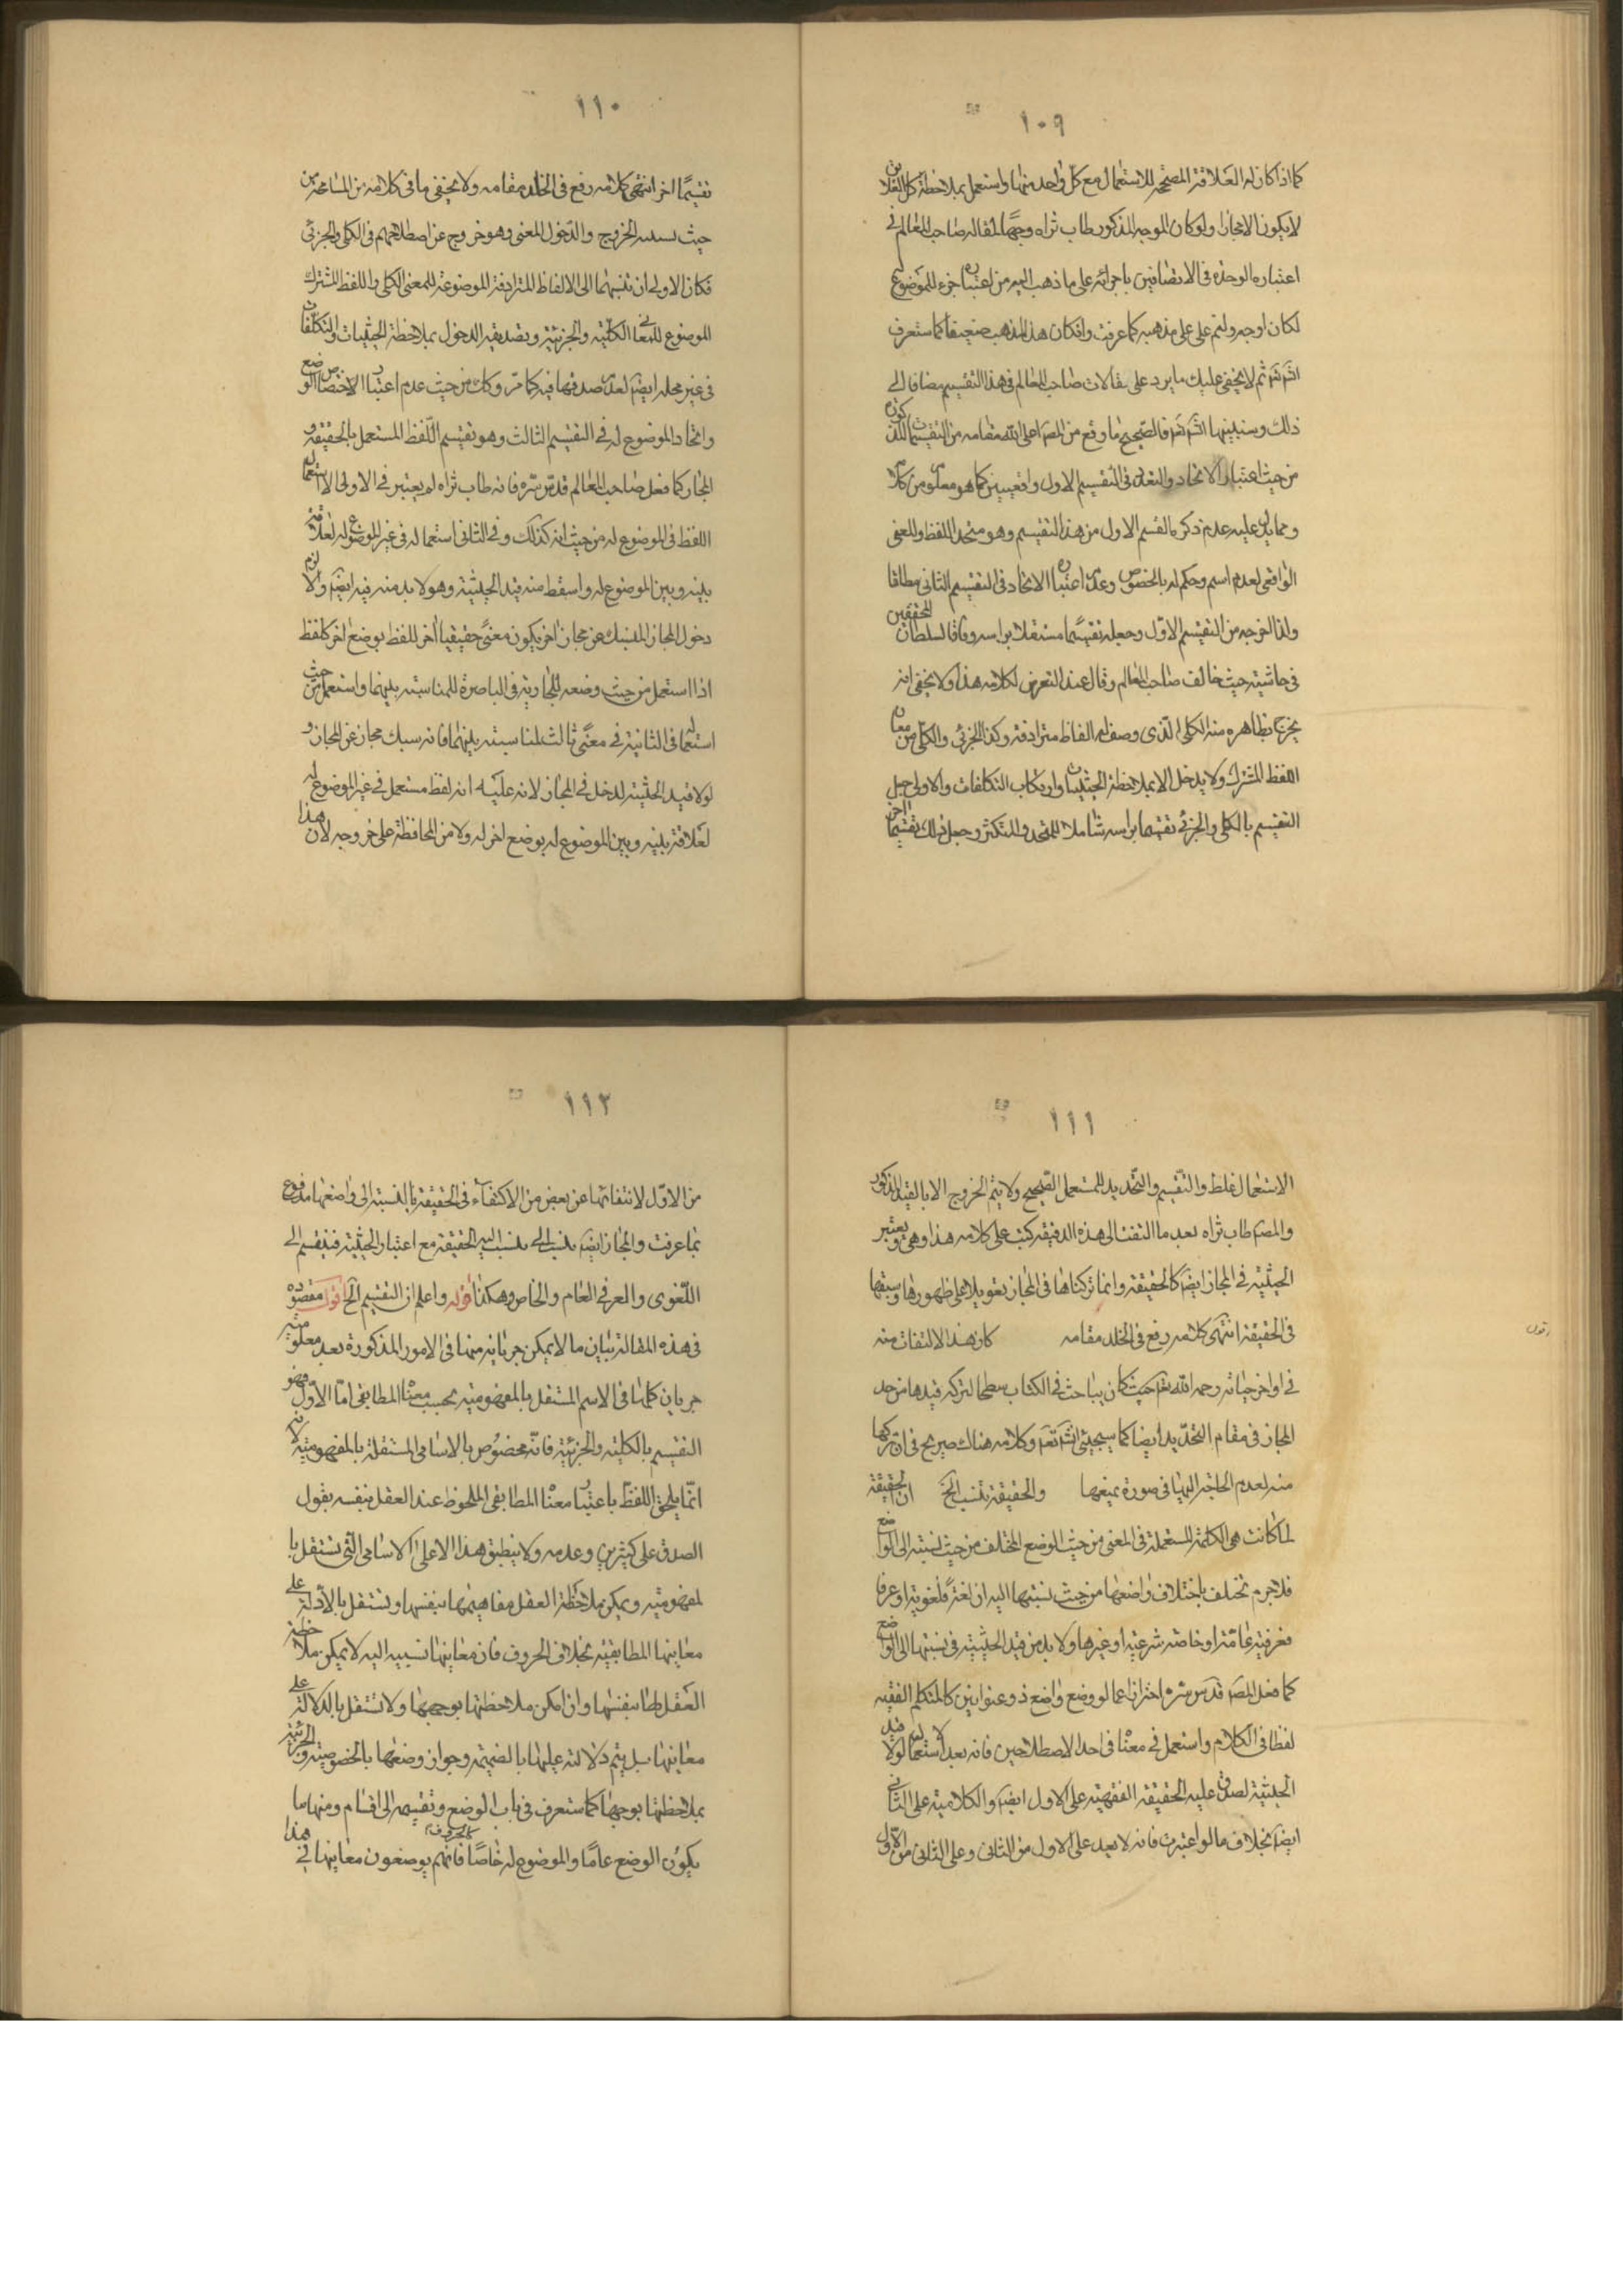 ١٠٩
كما اذا كان له العلاقة المصححة للاستعمال مع كل واحد منهما واستعمل بملاحظة كل العلاقتين
لا يكون الا مجازا ولو كان الموجه المذكور طاب ثراه وجها لمقاله صاحب المعالم في
اعتباره الوحدة في الا باجرائه على ما ذهب اليه من اعتباره جزء للموضوع له
لكان اوجه ولتم على مذهبه كما عرفت وان كان هذا المذهب ضعيفا كما ستعرف
انشَ تعَ ثم لا يخفى عليك ما يرد على مقالات صاحب المعالم في هذا التقسيم مضافا الى
ذلك وسنبينها انشَ تعَ فالصحيح ما وقع من المصَ اعلى الله مقامه من التقسيمات كون
من حيث اعتبار الاتحاد والتعدد في التقسيم الاول واقعيين كما هو معلوم من كلامه
ومما يدل عليه عدم ذكره القسم الاول من هذا التقسيم وهو متحد اللفظ والمعنى
الواقعي لعدم اسم وحكم له بالخصوص وعدم اعتباره الاتحاد في التقسيم الثاني مطلقا
ولذا اخرجه من التقسيم الاول وجعله تقسيما مستقلا براسه وفاقا لسلطان المحققين
في حاشيته حيث خالف صاحب المعالم وقال عند التعرض لكلامه هذا ولا يخفى انه
يخرج بظاهره منه الكلى الذى وصف له الفاظ مترادفة وكذا الجزئى والكلى من معان
اللفظ المشترك ولا يدخل الا بملاحظة الحيثيات وارتكاب التكلفات والاولى جعل
التقسيم بالكلى والجزئى تقسيما براسه شاملا للمتحد والمتكثر وجعل ذلك تقسيما اخر
١١٠
تقسيما اخر انتهى كلامه رفع في الخلد مقامه ولا يخفى ما في كلامه من المسامحة من
حيث نسبه الخروج والدخول للمعنى وهو خروج عن اصطلاحهم في الكلى والجزئى
فكان الاولى ان ينسبهما الى الالفاظ المترادفة الموضوعة للمعنى الكلى واللفظ المشترك
الموضوع للمعانى الكلية والجزئية وتصديقه الدخول بملاحظة الحيثيات والتكلفات
في غير محله ايضَ لعدم صدقها فيه كما مر وكك من حيث عدم اعتبار الاختصاص الوضع
واتحاد الموضوع له في التقسيم الثالث وهو تقسيم اللفظ المستعمل بالحقيقة و
المجاز كما فعل صاحب المعالم قدس سره فانه طاب ثراه لم يعتبر في الاولى الا استعمال
اللفظ في الموضوع له من حيث انه كذلك وفي الثانى استعماله في غير الموضوع له لعلاقة
بينه وبين الموضوع له واسقط منه قيد الحيثية وهو لا بد منه فيه ايضَ والا لزم
دخول المجاز المنسبك عن مجاز اخر يكون معنى حقيقيا اخر للفظ بوضع اخر كلفظ
اذا استعمل من حيث وضعه للجارية في الباصرة للمناسبة بينهما واستعمل من حيث
استعماله في الثانية في معنى ثالث لمناسبته بينهما فانه سبك مجاز عن المجاز و
لولا قيد الحيثية لدخل في المجاز لانه عليه انه لفظ مستعمل في غير الموضوع له
لعلاقة بينه وبين الموضوع له بوضع اخر له ولا من المحافظة على خروجه لان هذا
١١١
الاستعمال غلط والتقسيم والتحديد للمستعمل الصحيح ولا يتم الخروج الا بالقيد المذكور
والمصَ طاب ثراه بعد ما التفت الى هذه الدقيقة كتب على كلامه هذا وهى ويعتبر
الحيثية في المجاز ايضَ كالحقيقة وانما تركناها في المجاز تعويلا على ظهورها وسبقها
في الحقيقة انتهى كلامه رفع في الخلد مقامه كان هذا الالتفات منه
في اواخر حياته رحمه الله تعَ حيث كان يباحث في الكتاب سطحا لتركه قيدها من حد
المجاز في مقام التحديد ايضا كما سيجيئ انشَ تعَ وكلامه هناك صريح في ان تركها
منه لعدم الحاجة اليها في صورة تميعها والحقيقة تنسب الخ ان الحقيقة
لما كانت هى الكلمة المستعملة في المعنى من حيث الوضع المختلف من حيث نسبته الى الواضع
فلا جرم تختلف باختلاف واضعها من حيث نسبتها اليه ان لغة فلغوية او عرفا
فعرفية عامة او خاصة شرعية او غيرها ولا بد من قيد الحيثية في نسبتها الى الواضع
كما فعل المصَ قدس سره احترازا عما لو وضع واضع ذو عنوانين كالمتكلم الفقيه
لفظا في الكلام واستعمل في معناه في احد الاصطلاحين فانه بعد استعماله لولا قيد
الحيثية لصدق عليه الحقيقة الفقهية على الاول ايضَ والكلامية على الثانى
ايضَ بخلاف ما لو اعتبرت فانه لا يعد على الاول من الثانى وعلى الثانى من الاول
١١٢
من الاول لانتفائها عن بعض من الاكتفاء في الحقيقة بالنسبة الى واضعها مدفوع
بما عرفت والمجاز ايضَ ينسب الى ينسب اليه الحقيقة مع اعتبار الحيثية فينقسم الى
اللغوى والعرفى العام والخاص وهكذا قوله واعلم ان التقسيم الخ اقول مقصوده
في هذه المقالة بيان ما لا يمكن جريانه منها في الامور المذكورة بعد معلومية
جريان كلها في الاسم المستقل بالمفهومية بحسب معناه المطابقى اما الاول فهو
التقسيم بالكلية والجزئية فانه مخصوص بالاسامى المستقلة بالمفهومية لانه
انما يلحق اللفظ باعتبار معناه المطابقى الملحوظ عند العقل بنفسه بقول
الصدق على كثيرين وعدمه ولا ينطبق هذا الا على الاسامى التى تستقل با
لمفهومية ويمكن ملاحظة العقل مفاهيمها بنفسها وتستقل بالادلة على
معانيها المطابقية بخلاف الحروف فان معانيها نسبية اليه لا يمكن ملاحظة
العقل لها بنفسها وان امكن ملاحظتها بوجهها ولا تستقل بالدلالة على
معانيها بل يتم دلالته عليها بالضميمة وجواز وضعها بالخصوصية والجزئية
بملاحظتها بوجهها كما ستعرف في باب الوضع وتقسيمه الى اقسام ومنها ما
يكون الوضع عاما والموضوع له خاصا كالحروف فانهم يوضعون معانيها في هذا